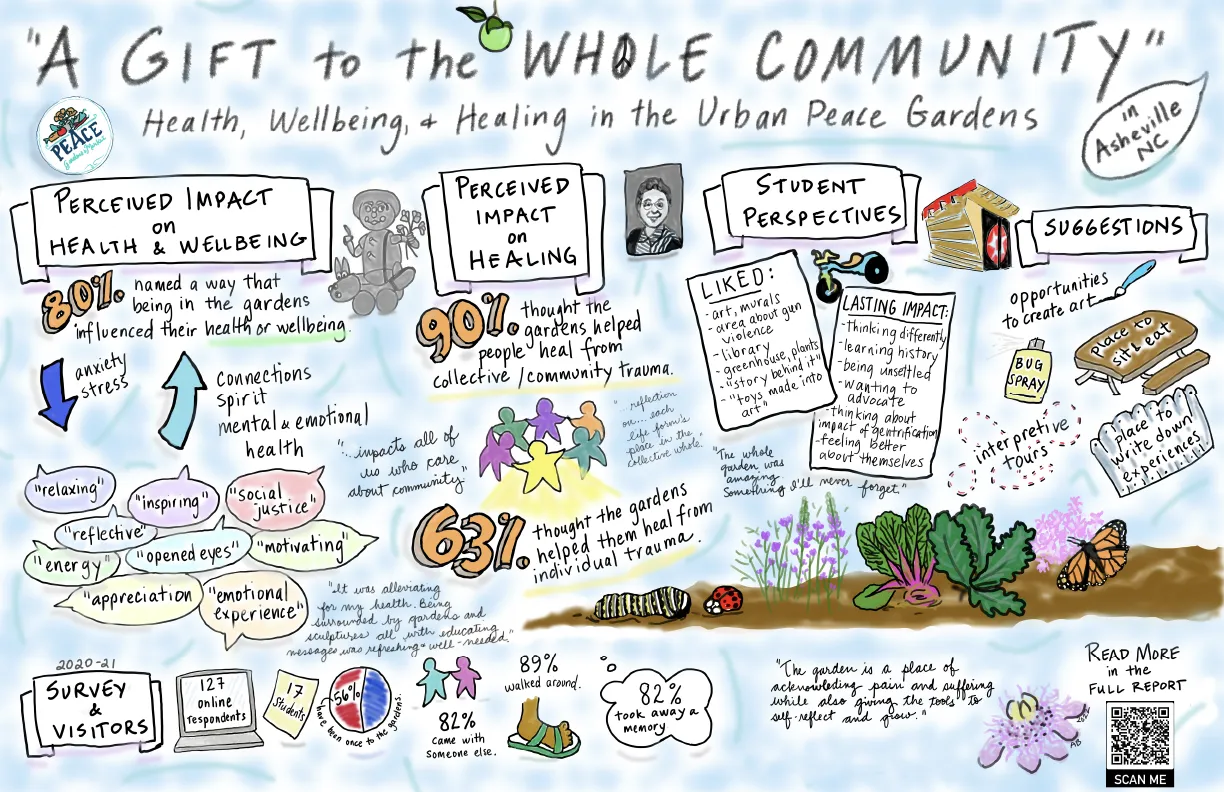 "A GIFT to the WHOLE COMMUNITY"
Health, Wellbeing, & Healing in the Urban Peace Gardens
in
Asheville
NC
PEACE
Gardens & Market
PERCEIVED IMPACT
on
HEALTH & WELLBEING
80% named a way that
being in the gardens
influenced their health or wellbeing.
anxiety
stress
Connections
Spirit
mental & emotional
health
"relaxing"
"inspiring"
"social
justice"
"reflective"
"energy"
"opened eyes"
"motivating"
"appreciation
"emotional
experience"
"It was alleviating
for my health. Being
surrounded by gardens and
sculptures all with educating
messages was refreshing & well-needed."
PERCEIVED
IMPACT
on
HEALING
90% thought the
gardens helped
people heal from
collective/community trauma.
"...impacts all of
us who care
about community"
"...reflection
on... each
life form's
place in the
collective whole."
63% thought the gardens
helped them heal from
individual trauma.
STUDENT
PERSPECTIVES
LIKED:
- art, murals
- area about gun
violence
- library
- greenhouse, plants
- "story behind it"
- "toys made into
art"
LASTING IMPACT:
- thinking differently
- learning history
- being unsettled
- wanting to
advocate
- thinking about
impact of gentrification
- feeling better
about themselves
"The whole
garden was
amazing.
Something I'll never forget."
SUGGESTIONS
opportunities
to create art
BUG
SPRAY
place to
sit & eat
interpretive
tours
place to
write down
experiences
2020-21
SURVEY
&
VISITORS
127
online
respondents
17
Students
56%
have been once to the gardens.
82%
came with
someone else.
89%
walked around.
82%
took away a
memory
"The garden is a place of
acknowledging pain and suffering
while also giving the tools to
self-reflect and grow."
AB
READ MORE
in the
FULL REPORT
SCAN ME